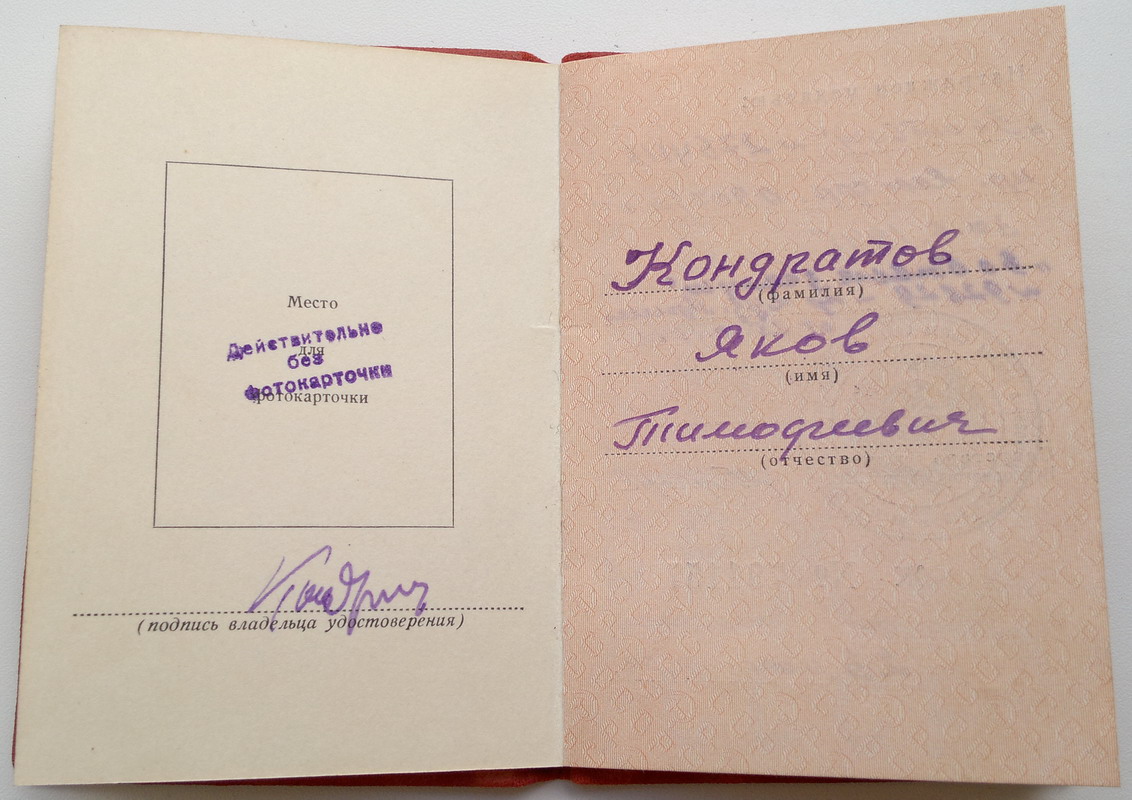 Место
для
фотокарточки
Действительно
без
фотокарточки
(подпись владельца удостоверения)
Кондратов
(фамилия)
Яков
(имя)
Тимофеевич
(отчество)